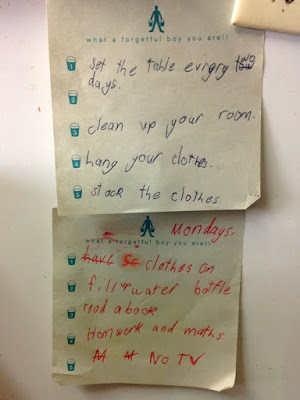 what a forgetful boy you are!!
1 set the table evrgry two
2 days.
3 clean up your room.
4 hang your clothes.
5 stack the clothes
Mondays.
what a forgetful boy you are!!
1 have sc clothes on
2 fill ur water bottle
3 read a book
4 Homwork and maths
5 No TV